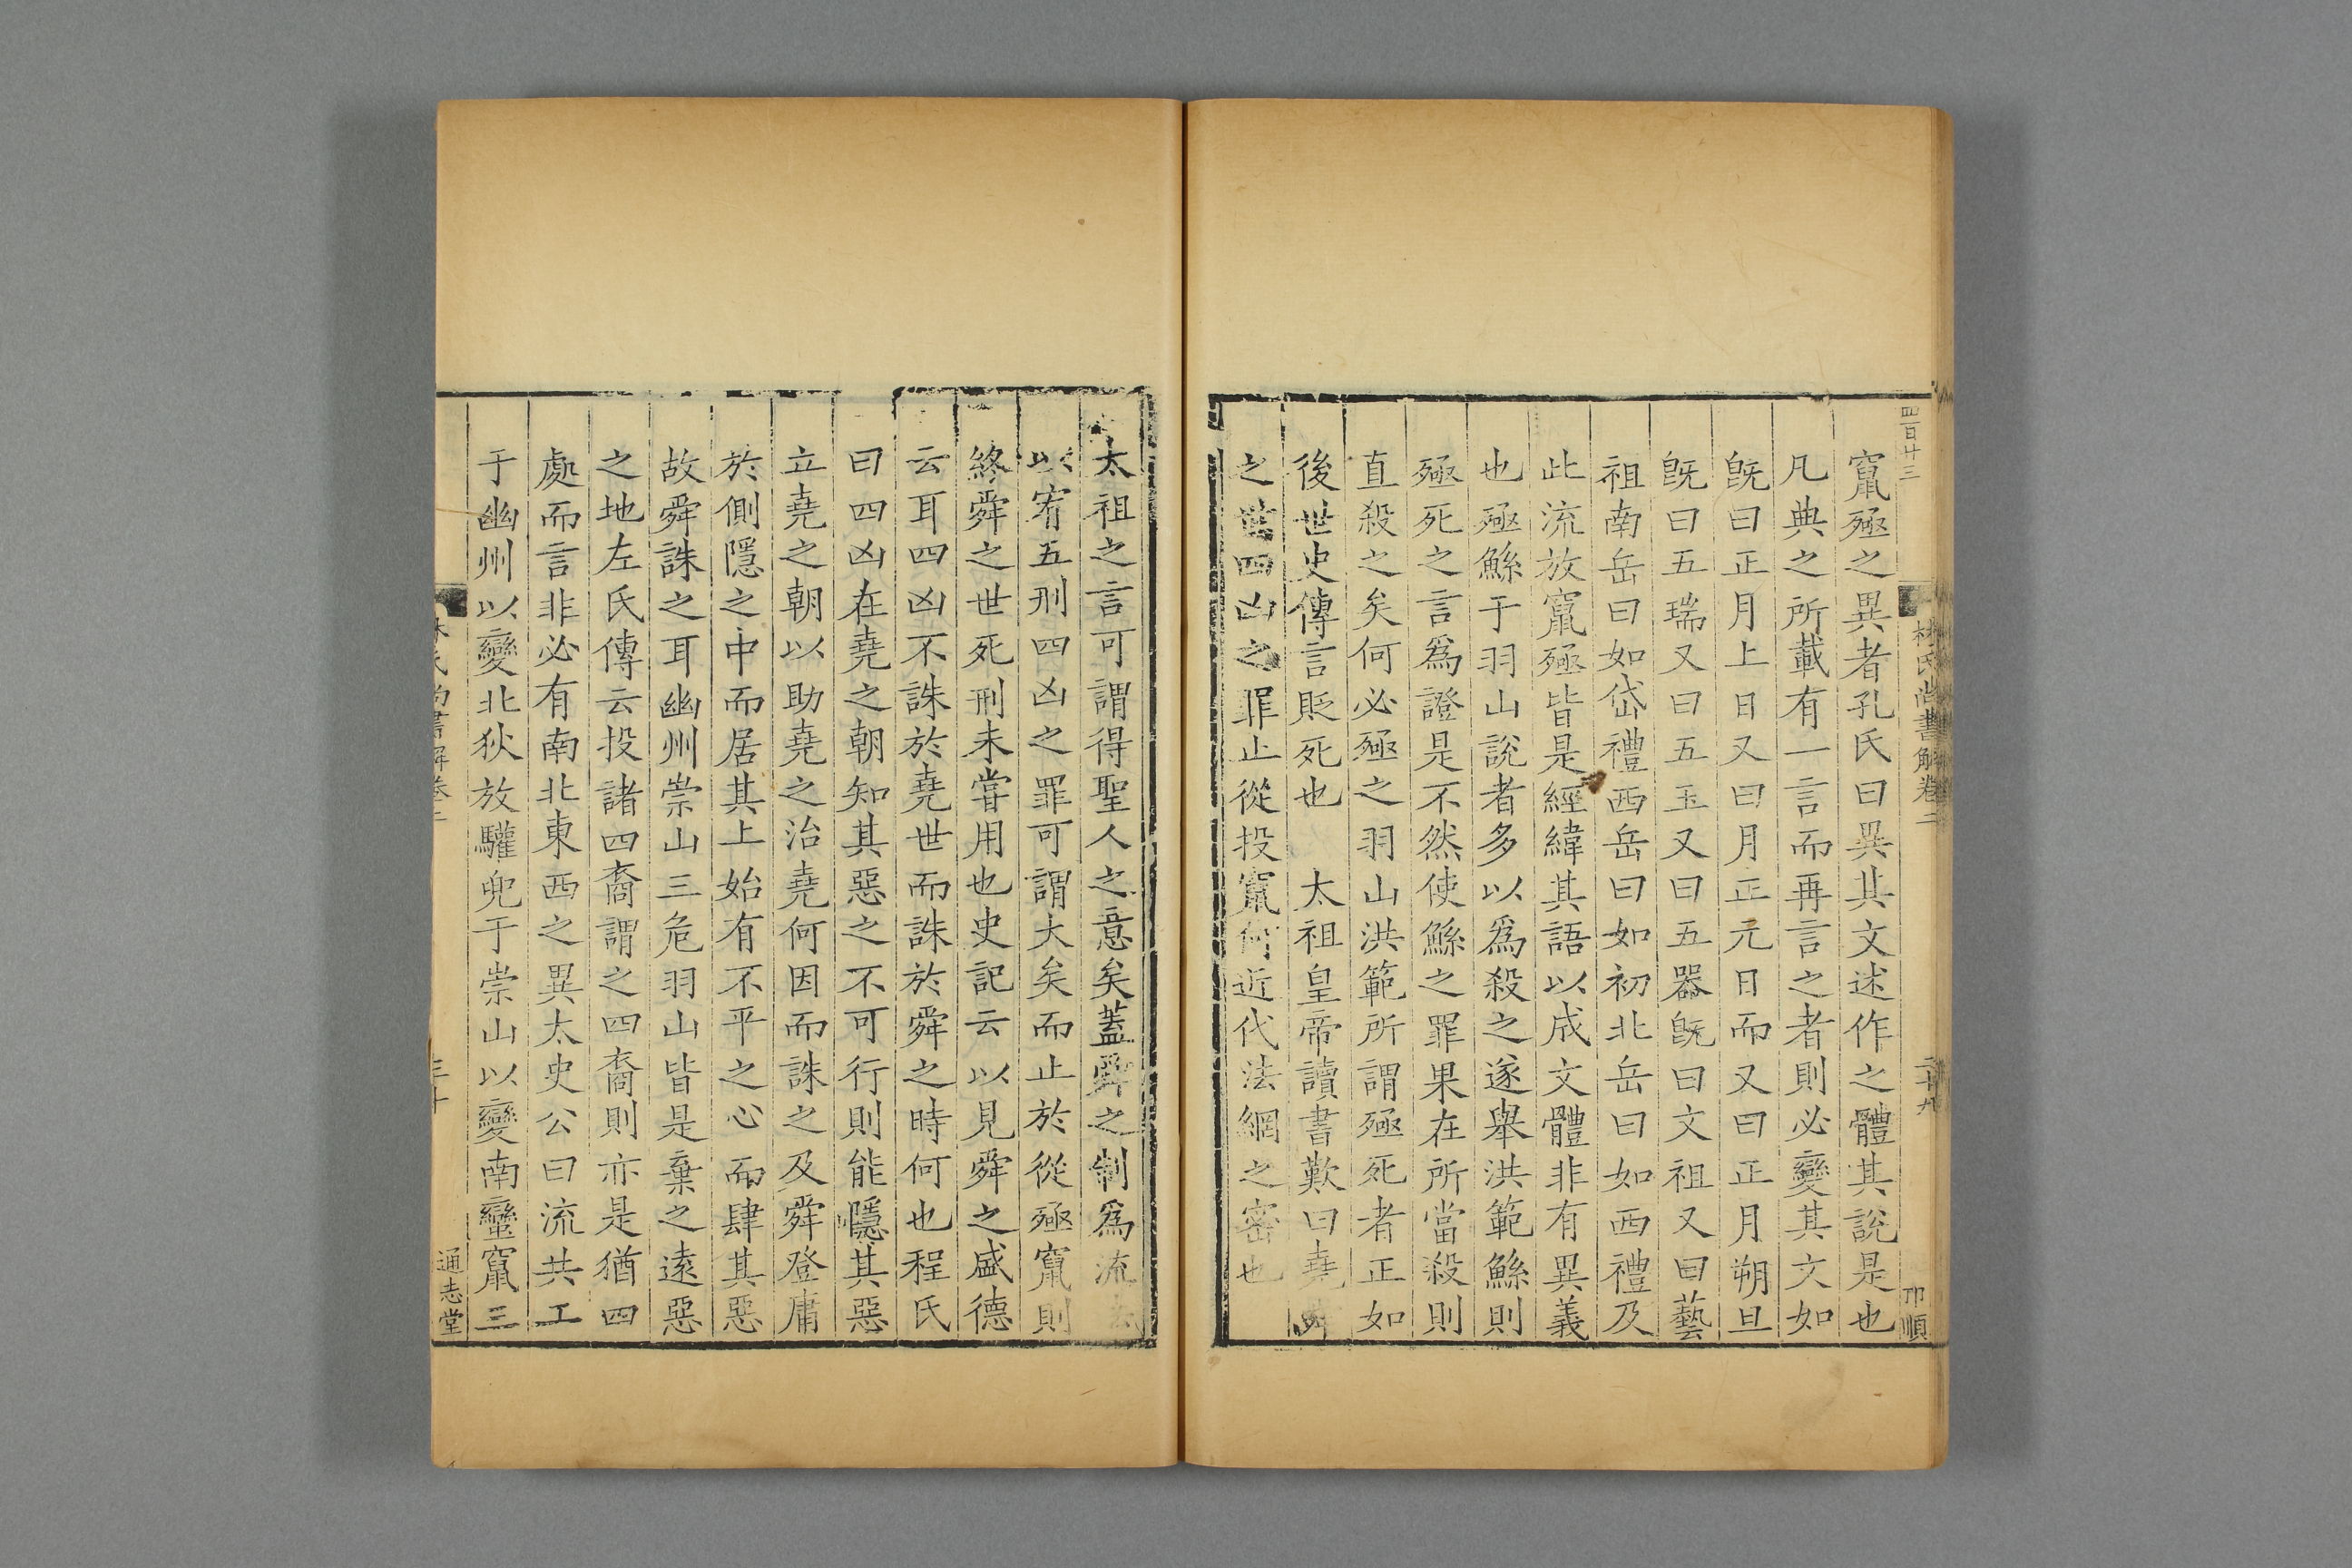 四百廿三
林氏尚書解卷二
二十九
卬順
竄殛之異者孔氏曰異其文述作之體其說是也
凡典之所載有一言而再言之者則必變其文如
旣曰正月上日又曰月正元日而又曰正月朔旦
旣曰五瑞又曰五玉又曰五器旣曰文祖又曰藝
祖南岳曰如岱禮西岳曰如初北岳曰如西禮及
此流放竄殛皆是經緯其語以成文體非有異義
也殛鯀于羽山說者多以爲殺之遂舉洪範鯀則
殛死之言爲證是不然使鯀之罪果在所當殺則
直殺之矣何必殛之羽山洪範所謂殛死者正如
後世史傳言貶死也　太祖皇帝讀書歎曰堯舜
之世四凶之罪止從投竄何近代法網之密也
太祖之言可謂得聖人之意矣蓋舜之制爲流
以宥五刑四凶之罪可謂大矣而止於從殛竄則
終舜之世死刑未嘗用也史記云以見舜之盛德
云耳四凶不誅於堯世而誅於舜之時何也程氏
曰四凶在堯之朝知其惡之不可行則能隱其惡
立堯之朝以助堯之治堯何因而誅之及舜登庸
於側隱之中而居其上始有不平之心而肆其惡
故舜誅之耳幽州崇山三危羽山皆是棄之遠惡
之地左氏傳云投諸四裔謂之四裔則亦是猶四
處而言非必有南北東西之異太史公曰流共工
于幽州以變北狄放驩兜于崇山以變南蠻竄三
林氏尚書解卷二
三十
通志堂